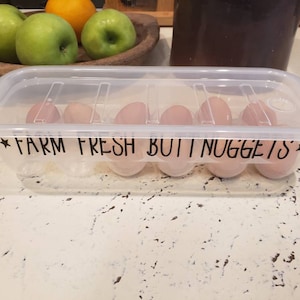 ★ FARM FRESH BUTT NUGGETS ★